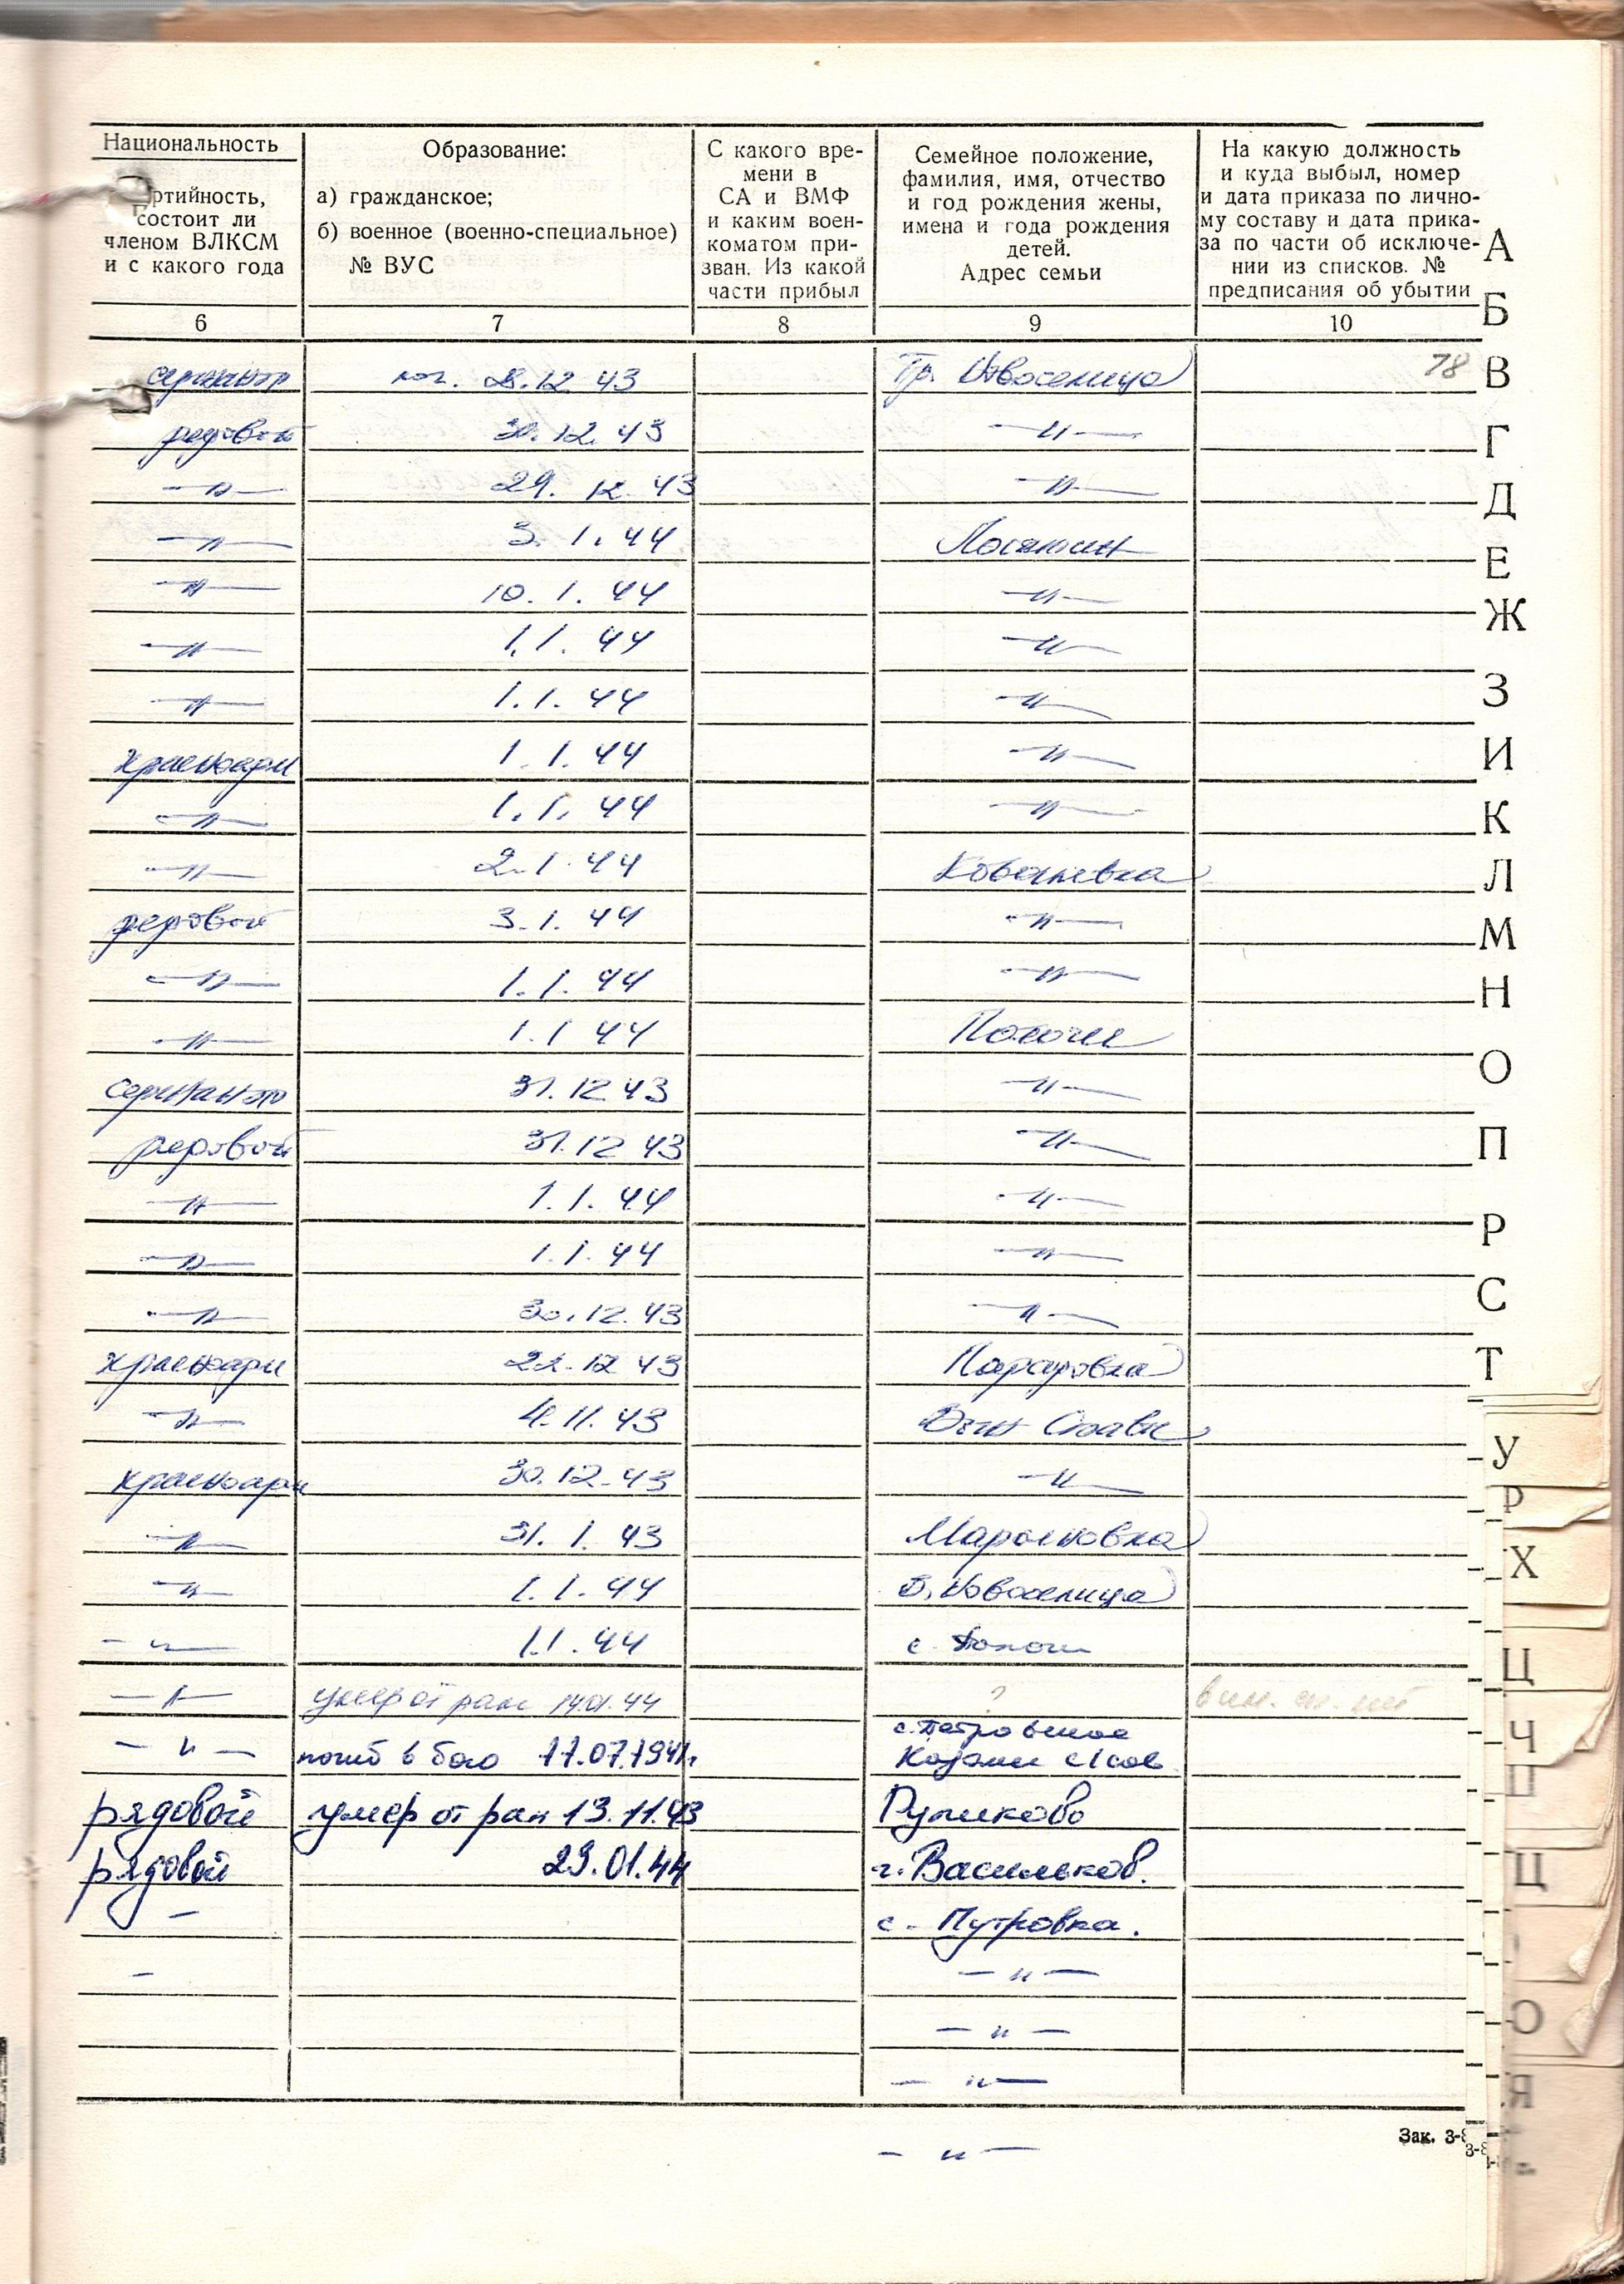 Национальность
ртийность,
состоит ли
членом ВЛКСМ
и с какого года
Образование:
а) гражданское;
б) военное (военно-специальное)
№ ВУС
С какого вре-
мени в
СА и ВМФ
и каким воен-
коматом при-
зван. Из какой
части прибыл
Семейное положение,
фамилия, имя, отчество
и год рождения жены,
имена и года рождения
детей.
Адрес семьи
На какую должность
и куда выбыл, номер
и дата приказа по лично-
му составу и дата прика-
за по части об исключе-
нии из списков. №
предписания об убытии
6 7 8 9 10
сержант 28.12 43 Гр. Новоселица 78
рядовой 30.12. 43 —"—
—"— 29. 12. 43 —"—
—"— 3. 1. 44
—"— 10. 1. 44 —"—
—"— 1.1. 44 —"—
—"— 1.1. 44 —"—
красноарм 1.1. 44 —"—
—"— 1.1. 44 —"—
—"— 2.1. 44
рядовой 3.1. 44 —"—
—"— 1.1. 44 —"—
—"— 1.1 44
сержант 31.12 43 —"—
рядовой 31.12 43 —"—
—"— 1.1. 44 —"—
—"— 1.1. 44 —"—
—"— 30.12. 43 —"—
красноарм 22.12 43
—"— 4.11. 43
красноарм 30.12.43 —"—
—"— 31. 1. 43 Марьяновка
—"— 1.1. 44 Новоселица
—"— 1.1. 44 с.
—"— умер от ран 14.01.44 ?
—"— погиб в бою 17.07.1941г. с. Петровское
рядовой умер от ран 13.11.43
рядовой 29.01.44 г. Васильков.
— с. Путровка.
— —"—
—"—
—"—
—"—
Зак. 3-
А
Б
В
Г
Д
Е
Ж
З
И
К
Л
М
Н
О
П
Р
С
Т
У
Р
Х
Ц
Ч
Ц
О
Я